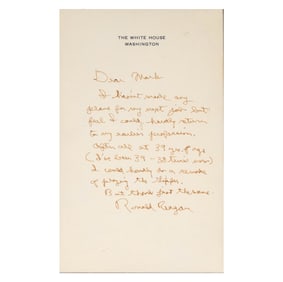 THE WHITE HOUSE
WASHINGTON
Dear Mark
I haven't made any
plans for my next job but
feel I could hardly return
to my earlier profession.
After all at 39 yrs. of age
(I've been 39 - 38 times now)
I could hardly do a remake
of playing the
But thanks for the
Ronald Reagan